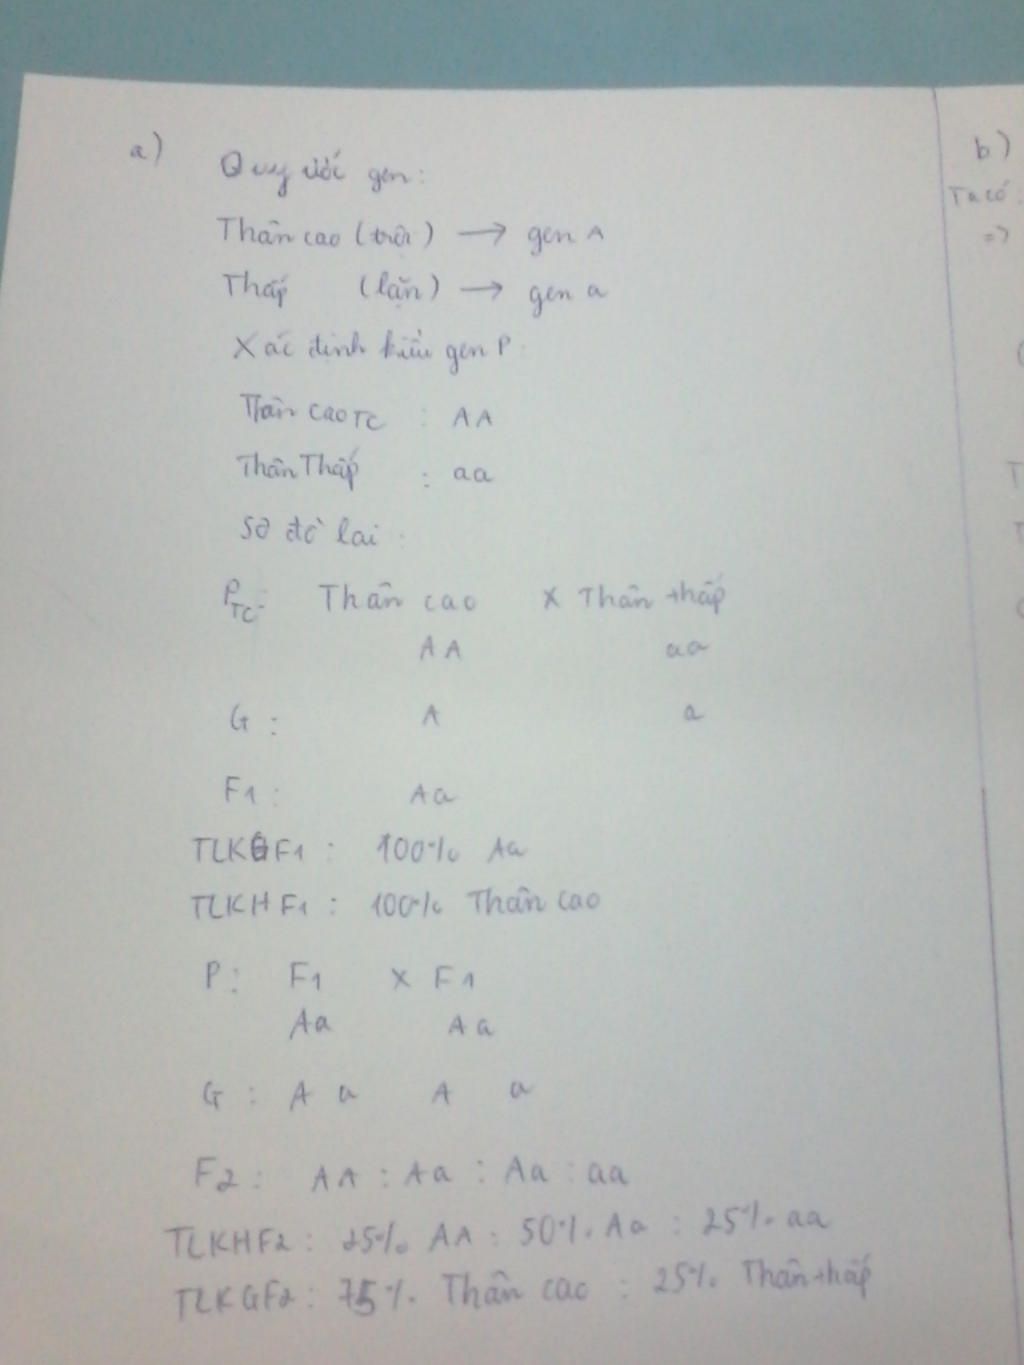 a)
Quy ước gen:
Thân cao (trội) → gen A
Thấp (lặn) → gen a
Xác định kiểu gen P:
Thân cao TC : AA
Thân Thấp : aa
Sơ đồ lai :
PTC: Thân cao X Thân thấp
AA aa
G : A a
F1 : Aa
TLKGF1 : 100% Aa
TLKHF1 : 100% Thân cao
P: F1 X F1
Aa Aa
G : A a A a
F2 : AA : Aa : Aa : aa
TLKHF2 : 25% AA : 50% Aa : 25% aa
TLKGF2 : 75% Thân cao : 25% Thân thấp
b)
Ta có :
=>